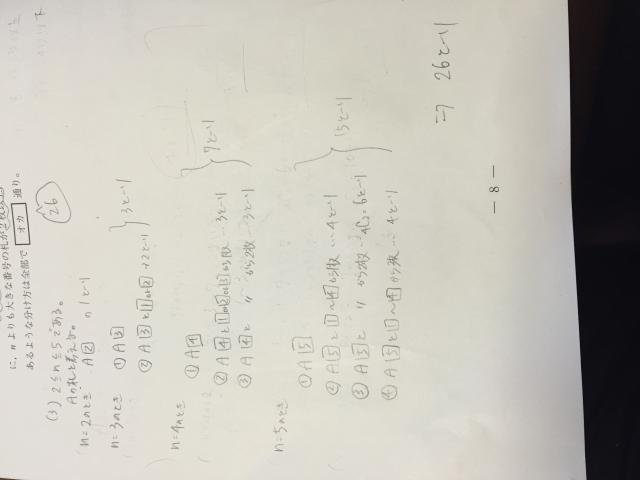 に、nよりも大きな番号の札が2枚以上
あるような分け方は全部で オカ 通り。
26
(3) 2≦n≦5である。
Aの札を考える。
n=2のとき A[2] の1とーり
n=3のとき ① A[3]
② A[3]と[1]or[2] …2とーり
3とーり
n=4のとき ① A[4]
② A[4]と[1]or[2]or[3]から1枚 …3とーり
③ A[4]と 〃 から2枚 …3とーり
7とーり
n=5のとき ① A[5]
② A[5]と[1]〜[4]から1枚 …4とーり
③ A[5]と 〃 から2枚 …4C2=6とーり
④ A[5]と[1]〜[4]から3枚 …4とーり
15とーり
⇒ 26とーり
— 8 —